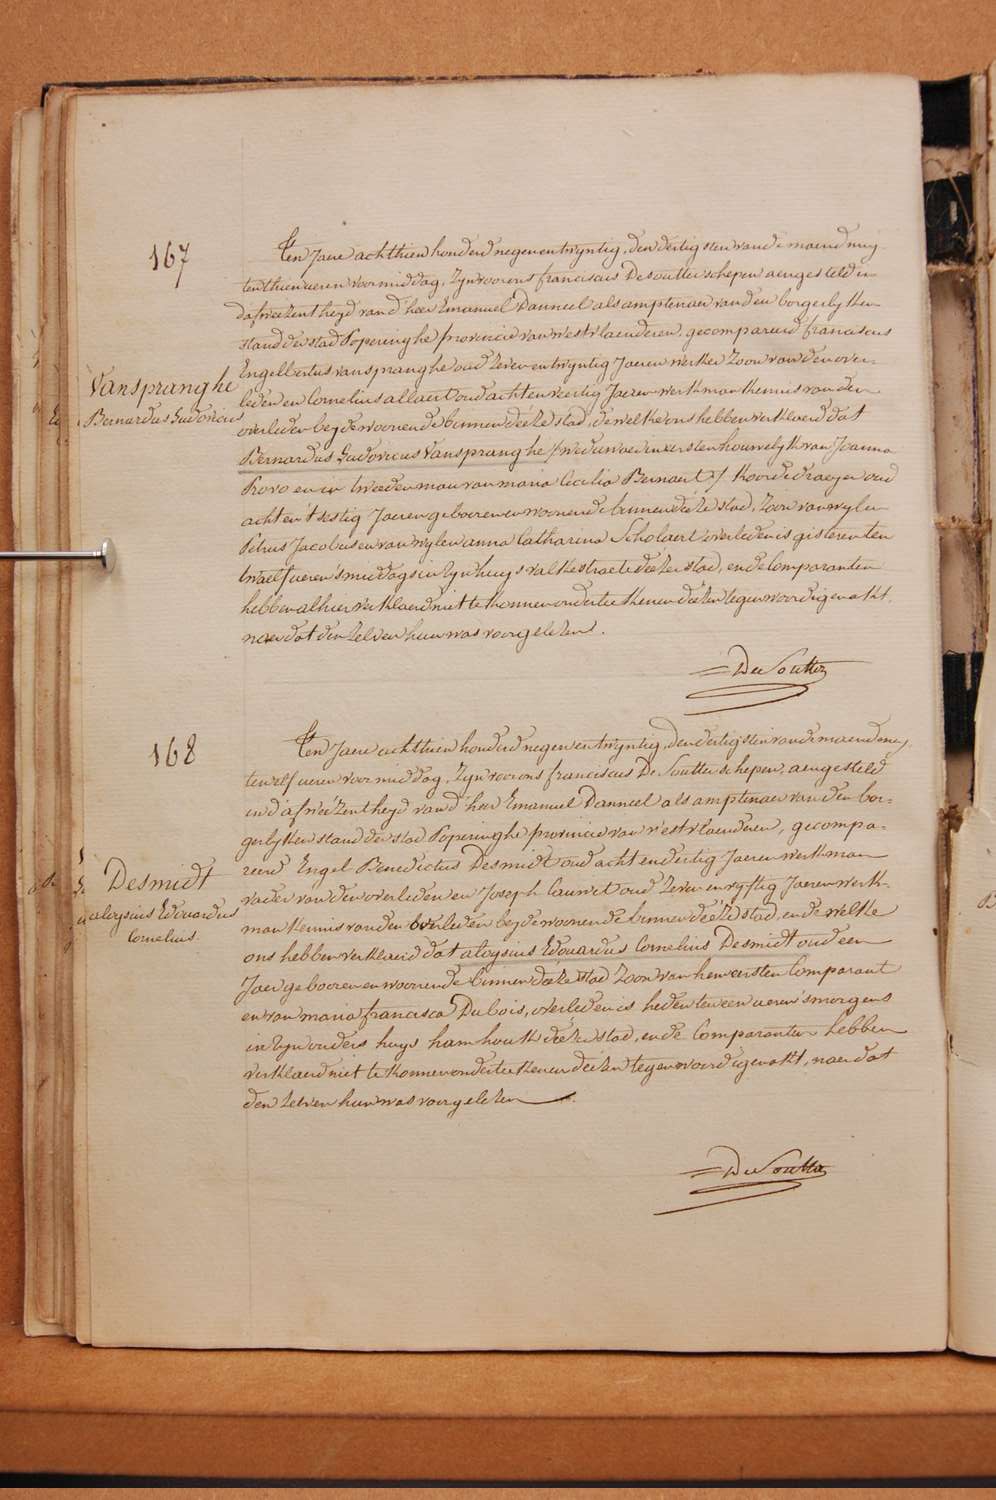 167
Vanspranghe
Bernardus Ludovicus
Ten Jaere achthien honderd negenentwyntig, den dertigsten van de maend mey
ten thien ueren voormiddag, Zyn voor ons franciscus De Soutter schepen aengesteld in
d'afweezentheyd van d'heer Emanuel Danneel als amptenaer van den borgerlyken
stand der stad Poperinghe provincie van westvlaenderen, gecompareerd franciscus
Engelbertus vanspranghe oud Zeven entwyntig Jaeren werker Zoon van den over-
leden en Cornelius allaert oud achtenveertig Jaeren werkman kennis van den
overleden beyde woonende binnen deéze stad, de welke ons hebben verklaerd dat
Bernardus Ludovicus Vanspranghe /: weduwaer in eersten houwelyk van Joanna
Rovo en in tweeden man van maria Cecilia Bernaert :/ koordedraeyer oud
acht en t'sestig Jaeren geboren en woonende binnen deéze stad, Zoon van wylen
Petrus Jacobus en van wylen anna Catharina Scholaert overleden is gisteren ten
twaelf ueren 'smiddags in Zyn huys valkestraete deézer stad, en de Comparanten
hebben alhier verklaerd niet te konnen onderteekenen deézen tegenwoordigen akt,
naer dat den Zelven hun was voorgelezen.
De Soutter
168
Desmidt
aloysius Edouardus
Cornelius.
Ten Jaere achthien honderd negenentwyntig, den dertigsten van de maend mey,
ten elf ueren voormiddag, Zyn voor ons franciscus De Soutter schepen, aengesteld
in d'afweézentheyd van d'heer Emanuel Danneel als amptenaer van den bor-
gerlyken stand der stad Poperinghe provincie van westvlaenderen, gecompa-
reerd Engel Benedictus Desmidt oud acht en dertig Jaeren werkman
vader van den overleden en Joseph Cauwet oud Zeven envyftig Jaeren werk-
man kennis van den overleden beyde woonende binnen deéze stad, en de welke
ons hebben verklaerd dat aloysius Edouardus Cornelius Desmidt oud een
Jaer geboren en woonende binnen deéze stad Zoon van hem eersten Comparant
en van maria francisca Dubois, overleden is heden ten een ueren 'smorgens
in Zyn ouders huys hamhouk deézer stad, en de Comparanten hebben
verklaerd niet te konnen onderteekenen deézen tegenwoordigen akt, naer dat
den Zelven hun was voorgelezen
De Soutter